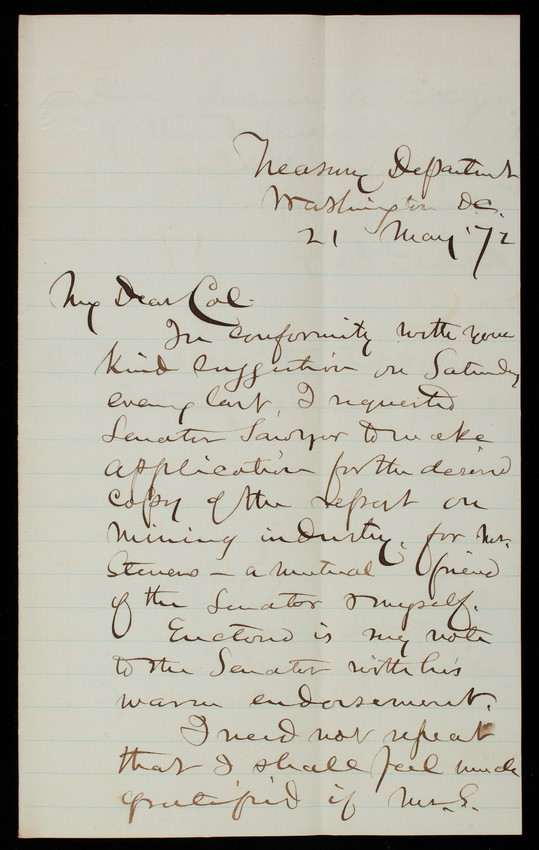 Treasury Department
Washington D.C.
21 May '72
My Dear Col-
In conformity with your
kind suggestion on Saturday
eveng last, I requested
Senator Sawyer to make
application for the desired
copy of the report on
mining industry, for Mr.
Stevens - a mutual friend
of the Senator & myself.
Enclosed is my note
to the Senator with his
warm endorsement.
I need not repeat
that I shall feel much
gratified if Mr. S.